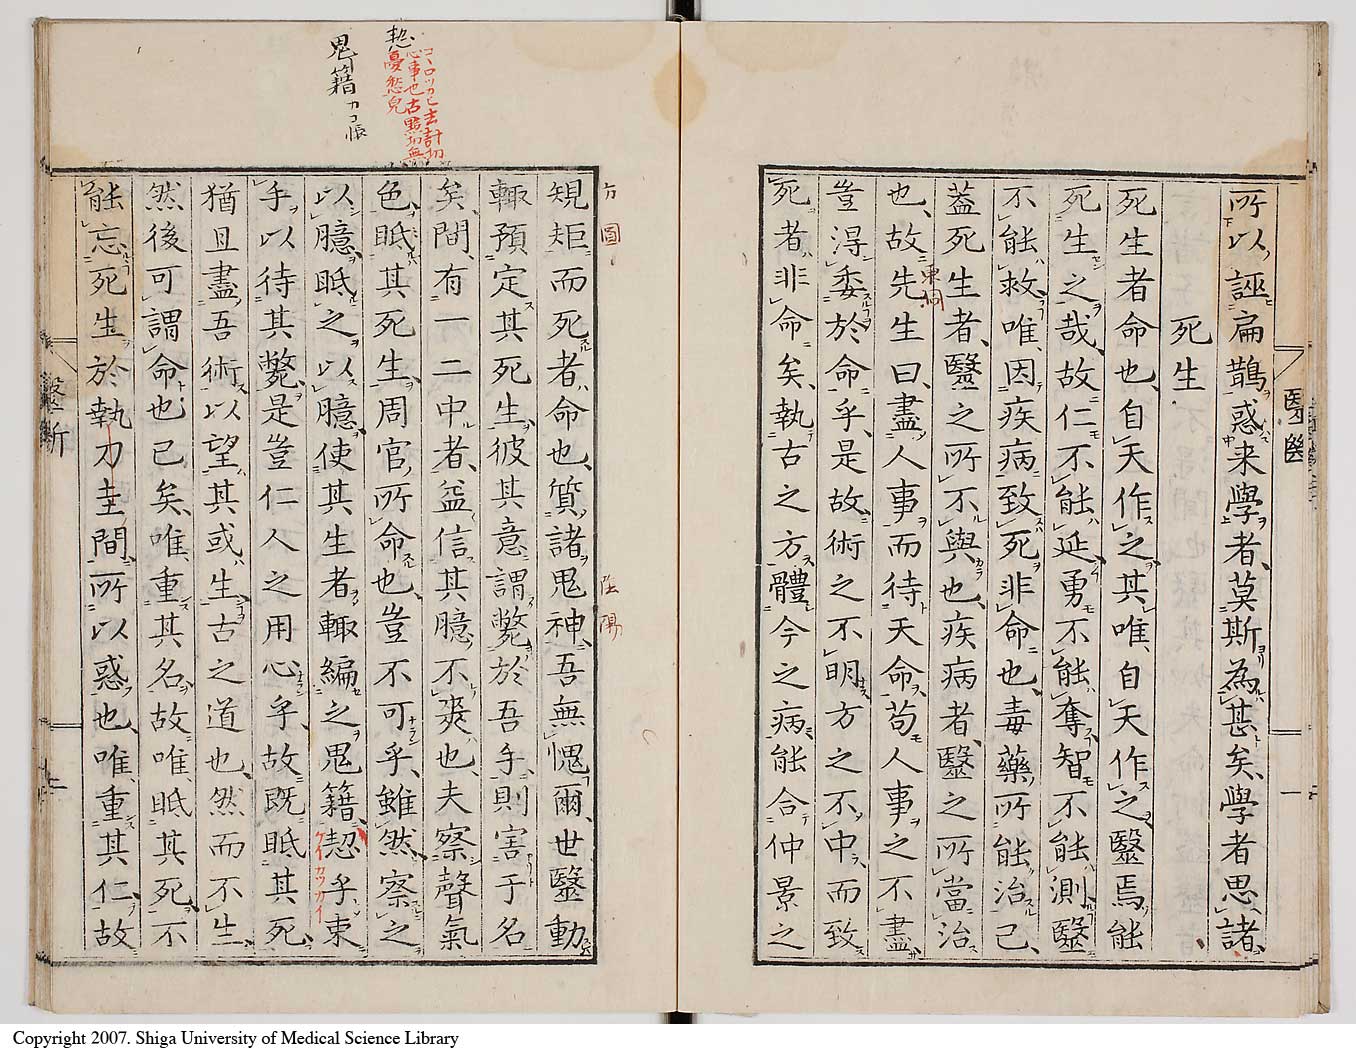 所以誣扁鵲惑来學者莫斯為甚矣學者思諸
死生
死生者命也自天作之其唯自天作之毉焉能
死生之哉故仁不能延勇不能奪智不能測毉
不能救唯因疾病致死非命也毒藥所能治已
蓋死生者毉之所不與也疾病者毉之所當治
也故先生曰盡人事而待天命苟人事之不盡
豈淂委於命乎是故術之不明方之不中而致
死者非命矣執古之方體今之病能合仲景之
東洞
毉斷
一
方圓
陰陽
規矩而死者命也質諸鬼神吾無愧爾世毉動
輙預定其死生彼其意謂斃於吾手則害于名
矣間有一二中者益信其臆不爽也夫察聲氣
色眂其死生周官所命也豈不可乎雖然察之
以臆眂之以臆使其生者輙編之鬼籍惄乎束
ケイカウカイ
手以待其斃是豈仁人之用心乎故既眂其死
猶且盡吾術以望其或生古之道也然而不生
然後可謂命也已矣唯重其名故唯眂其死不
能忘死生於執刀圭間所以惑也唯重其仁故
憂愁皃
鬼籍
毉斷
二
Copyright 2007. Shiga University of Medical Science Library